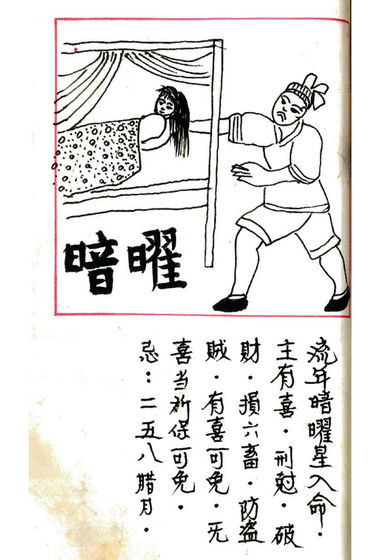 暗曜
流年暗曜星入命．
主有喜．刑尅．破
財．損六畜．防盗
賊．有喜可免．无
喜当祈保可免．
忌：二五八腊月．